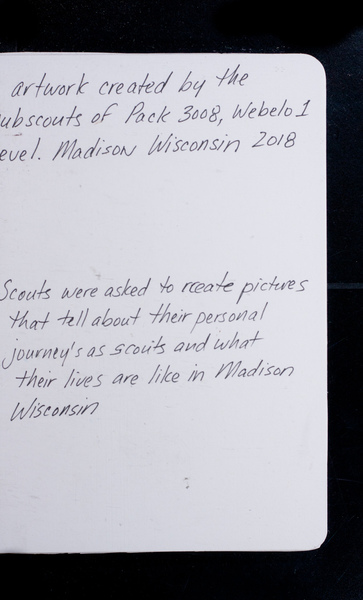 artwork created by the
ubscouts of Pack 3008, Webelo 1
evel. Madison Wisconsin 2018
Scouts were asked to rceate pictures
that tell about their personal
journey's as scouts and what
their lives are like in Madison
Wisconsin